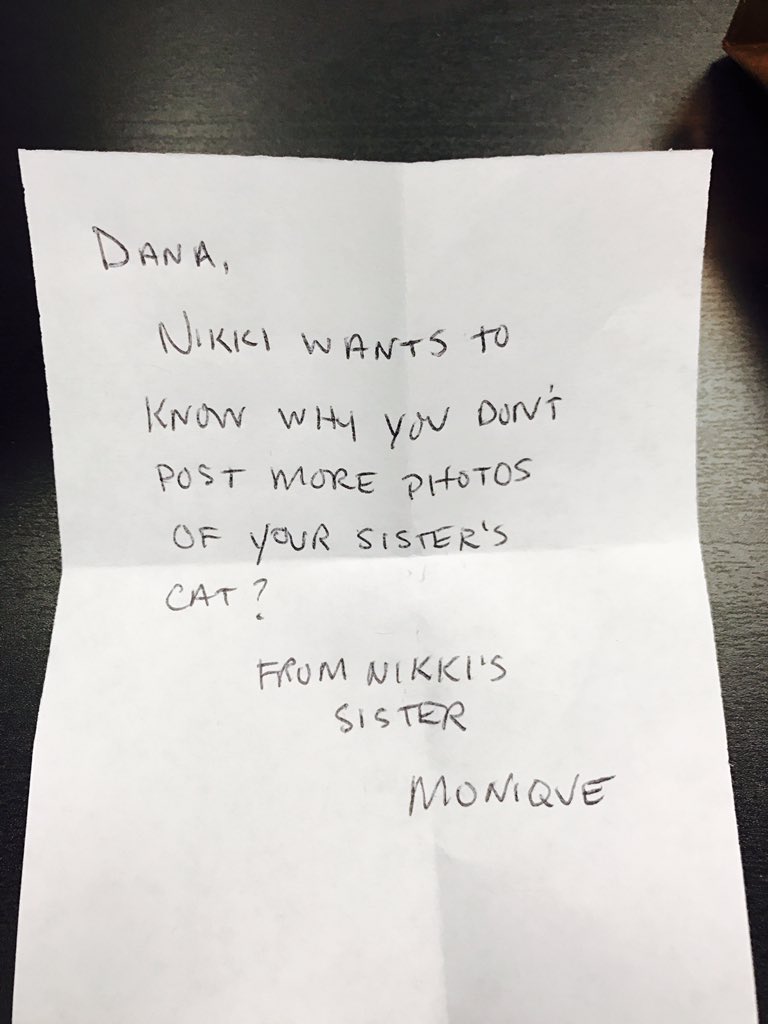 DANA,
NIKKI WANTS TO
KNOW WHY YOU DON'T
POST MORE PHOTOS
OF YOUR SISTER'S
CAT?
FROM NIKKI'S
SISTER
MONIQUE